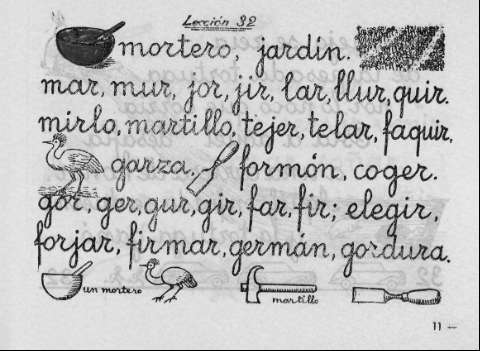 Lección 32
mortero, jardín.
mar, mur, jor, jir, lar, llur, quir.
mirlo, martillo, tejer, telar, faquir.
garza, formón, coger.
gor, ger, gur, gir, far, fir; elegir,
forjar, firmar, germán, gordura.
un mortero martillo
11 —